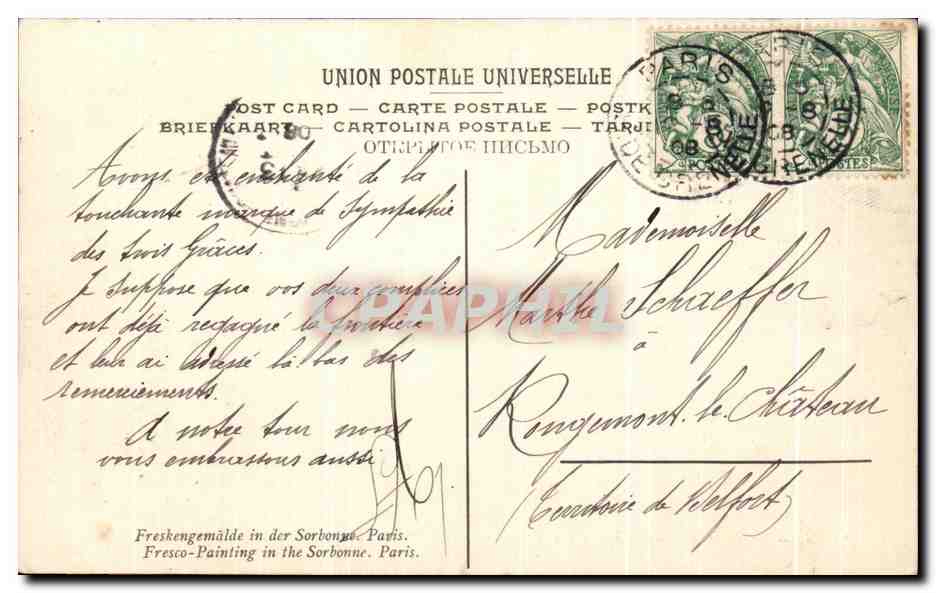 UNION POSTALE UNIVERSELLE
POST CARD — CARTE POSTALE — POSTK
BRIEFKAART — CARTOLINA POSTALE — TARJ
ОТКРЫТОЕ ПИСЬМО
PARIS
PARIS
GRENELLE
GRENELLE
POSTES
et enchanté de la
touchante marque de Sympathie
des trois Grâces.
Je suppose que vos deux complices
ont déjà regagné la frontière
et leur ai adressé là bas des
remerciements.
A notre tour nous
vous embrassons aussi
Mademoiselle
Marthe Schaeffer
à
Rougemont-le-Château
(Territoire de Belfort)
CPAPHIL
Freskengemälde in der Sorbonne. Paris.
Fresco-Painting in the Sorbonne. Paris.